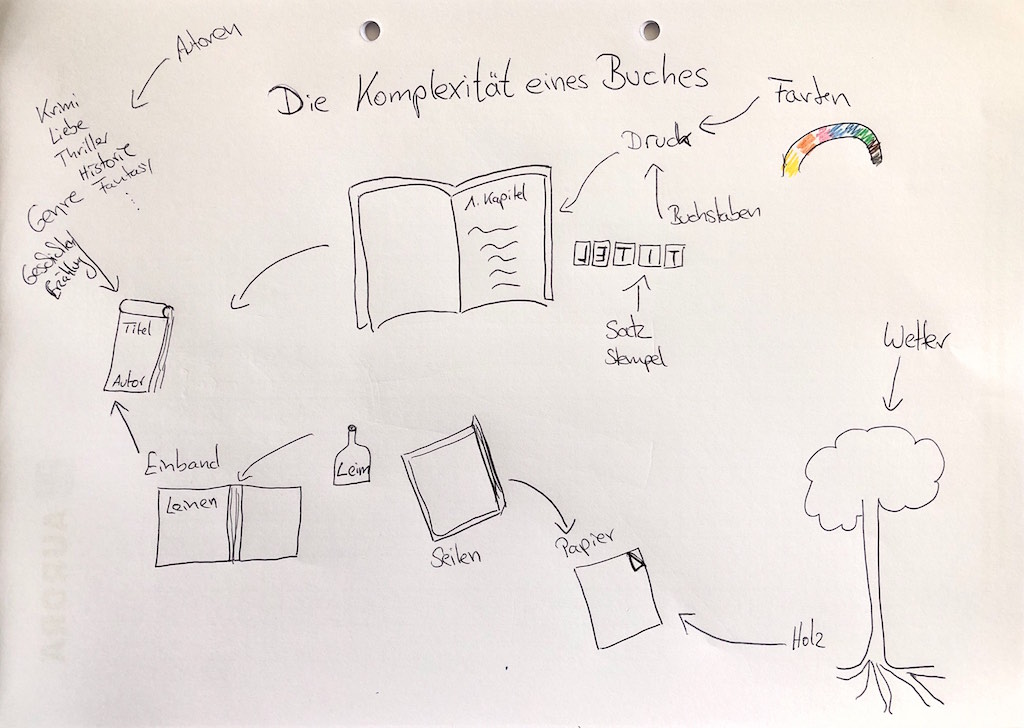 Autoren
Die Komplexität eines Buches
Farben
Krimi
Liebe
Thriller
Historie
Fantasy
...
Genre
Druck
1. Kapitel
Buchstaben
TITEL
Satz
Stempel
Titel
Autor
Wetter
Einband
Leinen
Leim
Seiten
Papier
Holz
AURORA